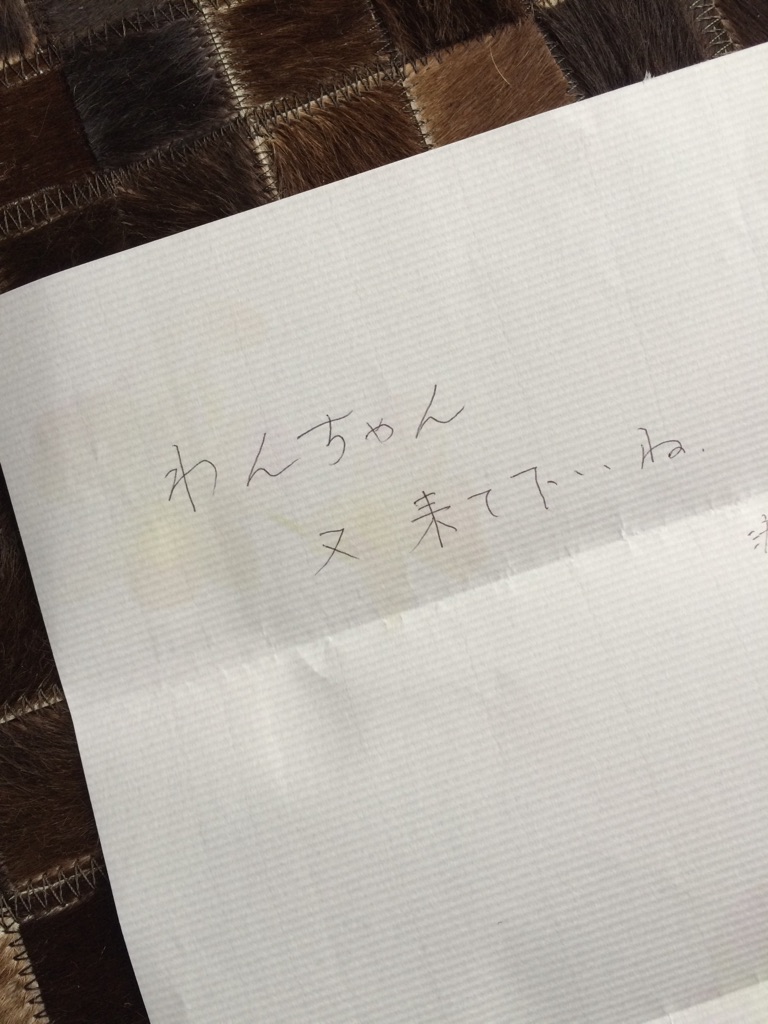 わんちゃん
又来て下さいね.